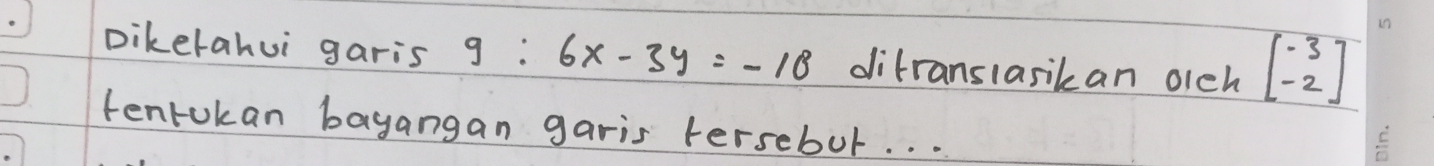 Diketahui garis g : 6x - 3y = -18 ditranslasikan oleh [-3 -2]
tentukan bayangan garis tersebut...
5
Din.